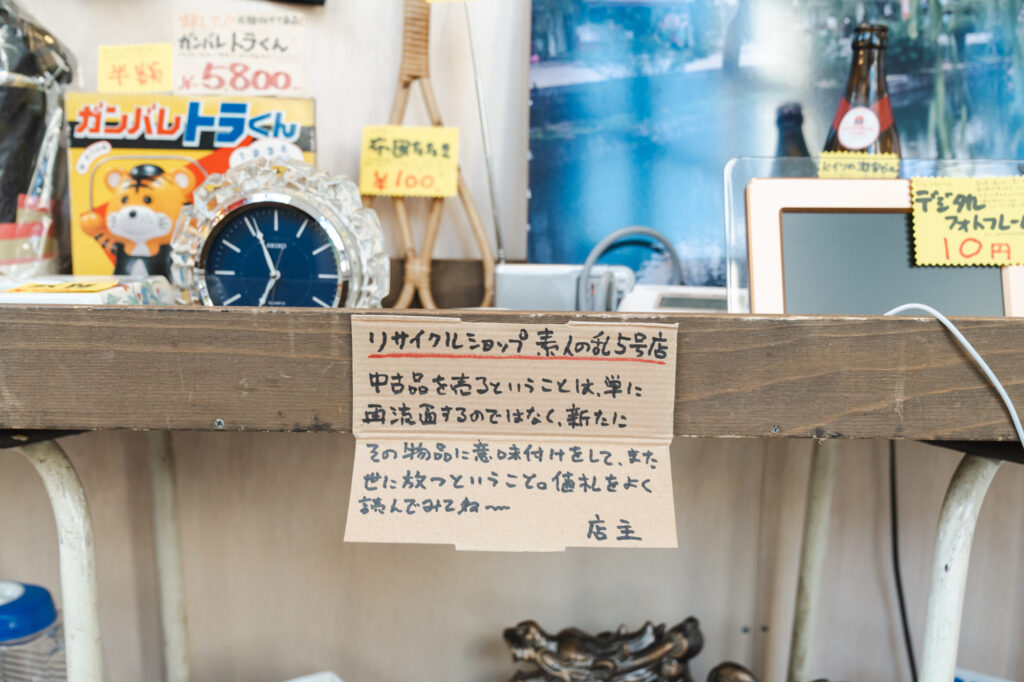 ガンバレトラくん
¥5800
半額
ガンバレトラくん
1234
SEIKO
QUARTZ
布団たたき
¥100
ドイツの空きビン
デジタル
フォトフレーム
10円
リサイクルショップ 素人の乱5号店
中古品を売るということは、単に
再流通するのではなく、新たに
その物品に意味付けをして、また
世に放つということ。値札をよく
読んでみてね〜
店主